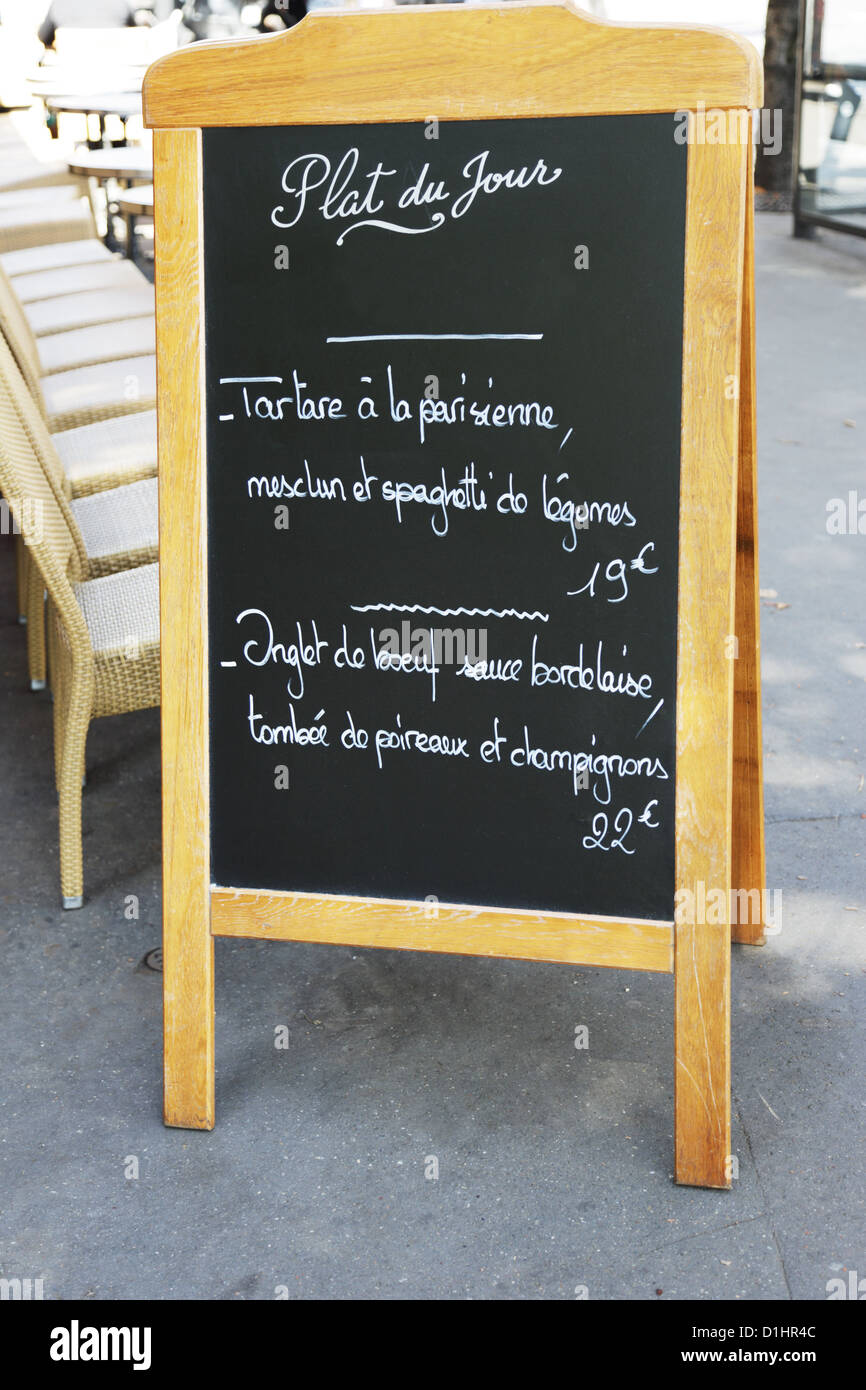 Plat du Jour
- Tartare à la parisienne,
mesclun et spaghetti de légumes
19€
- Onglet de boeuf sauce bordelaise,
tombée de poireaux et champignons
22€
alamy
Image ID: D1HR4C
www.alamy.com